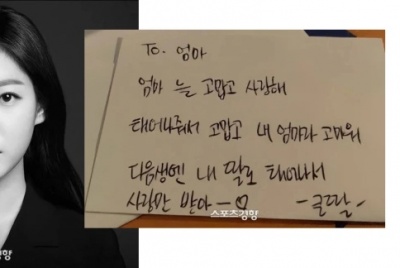 To. 엄마
엄마 늘 고맙고 사랑해
태어나줘서 고맙고 내 엄마라 고마워
다음생엔 내 딸로 태어나서
사랑만 받아 ~♡ -큰딸-
스포츠경향
경향